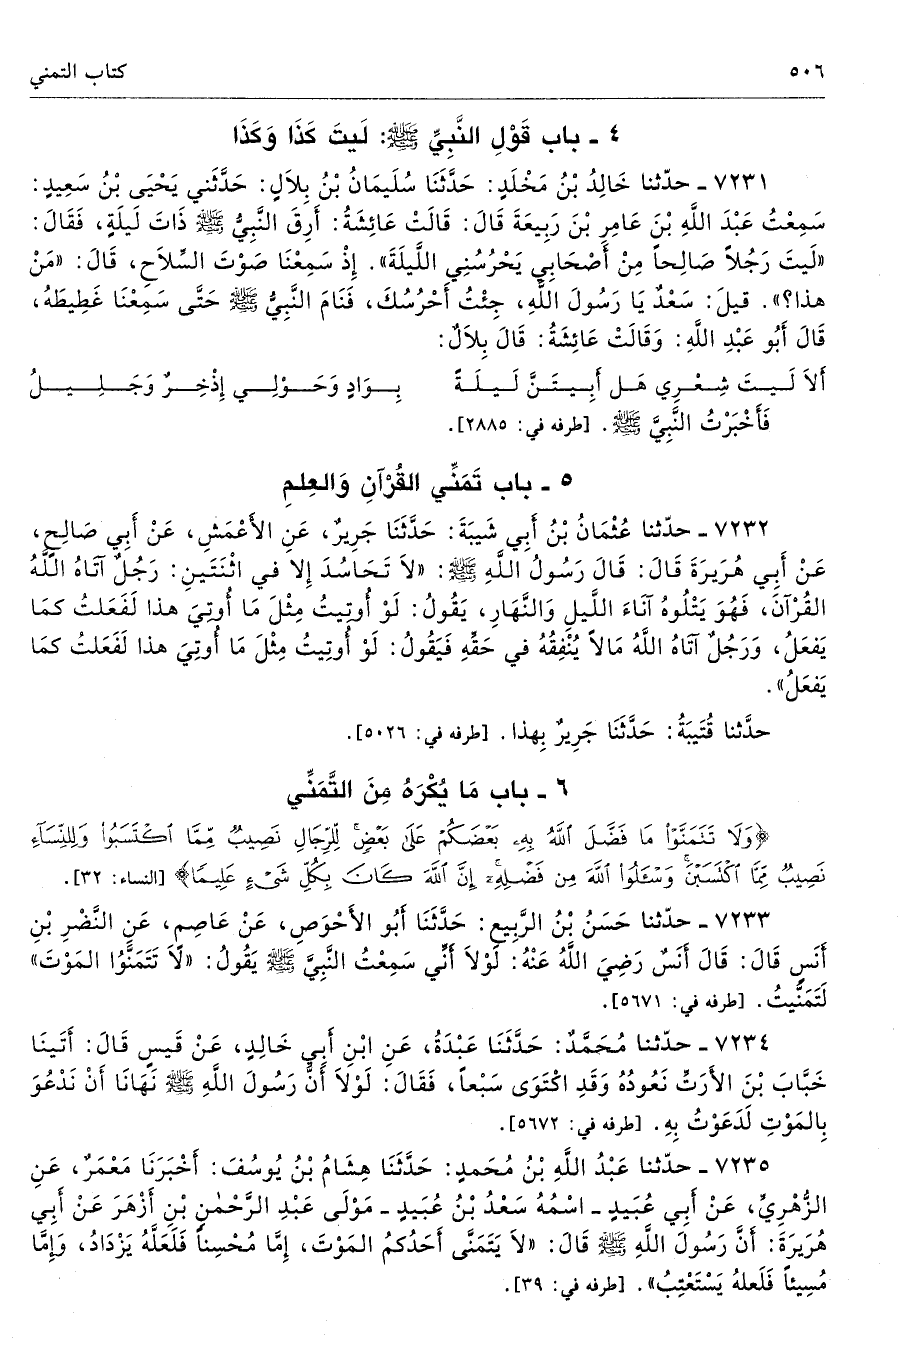 ٥٠٦ كتاب التمني
٤ ـ باب قَوْلِ النَّبِيِّ ﷺ: لَيتَ كَذَا وَكَذَا
٧٢٣١ ـ حدّثنا خَالِدُ بْنُ مَخْلَدٍ: حَدَّثَنَا سُلَيمَانُ بْنُ بِلاَلٍ: حَدَّثَني يَحْيَى بْنُ سَعِيدٍ:
سَمِعْتُ عَبْدَ اللَّهِ بْنَ عَامِرِ بْنِ رَبِيعَةَ قَالَ: قَالَتْ عَائِشَةُ: أَرِقَ النَّبِيُّ ﷺ ذَاتَ لَيلَةٍ، فَقَالَ:
«لَيتَ رَجُلاً صَالِحاً مِنْ أَصْحَابِي يَحْرُسُنِي اللَّيلَةَ». إِذْ سَمِعْنَا صَوْتَ السِّلاَحِ، قَالَ: «مَنْ
هذا؟». قيلَ: سَعْدٌ يَا رَسُولَ اللَّهِ، جِئْتُ أَحْرُسُكَ، فَنَامَ النَّبِيُّ ﷺ حَتَّى سَمِعْنَا غَطِيطَهُ،
قَالَ أَبُو عَبْدِ اللَّهِ: وَقَالَتْ عَائِشَةُ: قَالَ بِلاَلٌ:
أَلاَ لَيتَ شِعْرِي هَل أَبِيتَنَّ لَيلَةً بِوَادٍ وَحَوْلِي إِذْخِرٌ وَجَلِيلُ
فَأَخْبَرْتُ النَّبِيَّ ﷺ. [طرفه في: ٢٨٨٥].
٥ ـ باب تَمَنِّي القُرْآنِ وَالعِلمِ
٧٢٣٢ ـ حدّثنا عُثْمَانُ بْنُ أَبِي شَيبَةَ: حَدَّثَنَا جَرِيرٌ، عَنِ الأَعْمَشِ، عَنْ أَبِي صَالِحٍ،
عَنْ أَبِي هُرَيرَةَ قَالَ: قَالَ رَسُولُ اللَّهِ ﷺ: «لاَ تَحَاسُدَ إِلا في اثْنَتَينِ: رَجُلٌ آتَاهُ اللَّهُ
القُرْآنَ، فَهُوَ يَتْلُوهُ آنَاءَ اللَّيلِ وَالنَّهَارِ، يَقُولُ: لَوْ أُوتِيتُ مِثْلَ مَا أُوتِيَ هذا لَفَعَلتُ كمَا
يَفعَلُ، وَرَجُلٌ آتَاهُ اللَّهُ مَالاً يُنْفِقُهُ في حَقِّهِ فَيَقُولُ: لَوْ أُوتِيتُ مِثْلَ مَا أُوتِيَ هذا لَفَعَلتُ كمَا
يَفعَلُ».
حدَّثنا قُتَيبَةُ: حَدَّثَنَا جَرِيرٌ بِهذا. [طرفه في: ٥٠٢٦].
٦ ـ باب مَا يُكْرَهُ مِنَ التَّمَنِّي
﴿وَلَا تَتَمَنَّوْا۟ مَا فَضَّلَ ٱللَّهُ بِهِۦ بَعْضَكُمْ عَلَىٰ بَعْضٍۢ ۚ لِّلرِّجَالِ نَصِيبٌۭ مِّمَّا ٱكْتَسَبُوا۟ ۖ وَلِلنِّسَآءِ
نَصِيبٌۭ مِّمَّا ٱكْتَسَبْنَ ۚ وَسْـَٔلُوا۟ ٱللَّهَ مِن فَضْلِهِۦٓ ۗ إِنَّ ٱللَّهَ كَانَ بِكُلِّ شَىْءٍ عَلِيمًۭا﴾ [النساء: ٣٢].
٧٢٣٣ ـ حدّثنا حَسَنُ بْنُ الرَّبِيعِ: حَدَّثَنَا أَبُو الأَحْوَصِ، عَنْ عَاصِمٍ، عَنِ النَّضْرِ بْنِ
أَنَسٍ قَالَ: قَالَ أَنَسٌ رَضِيَ اللَّهُ عَنْهُ: لَوْلاَ أَنِّي سَمِعْتُ النَّبِيَّ ﷺ يَقُولُ: «لاَ تَتَمَنَّوُا المَوْتَ»
لَتَمَنَّيتُ. [طرفه في: ٥٦٧١].
٧٢٣٤ ـ حدّثنا مُحَمَّدٌ: حَدَّثَنَا عَبْدَةُ، عَنِ ابْنِ أَبِي خَالِدٍ، عَنْ قَيسٍ قَالَ: أَتَينَا
خَبَّابَ بْنَ الأَرَتِّ نَعُودُهُ وَقَدِ اكْتَوَى سَبْعاً، فَقَالَ: لَوْلاَ أَنَّ رَسُولَ اللَّهِ ﷺ نَهَانَا أَنْ نَدْعُوَ
بِالمَوْتِ لَدَعَوْتُ بِهِ. [طرفه في: ٥٦٧٢].
٧٢٣٥ ـ حدّثنا عَبْدُ اللَّهِ بْنُ مُحَمدٍ: حَدَّثَنَا هِشَامُ بْنُ يُوسُفَ: أَخْبَرَنَا مَعْمَرٌ، عَنِ
الزُّهْرِيِّ، عَنْ أَبِي عُبَيدٍ ـ اسْمُهُ سَعْدُ بْنُ عُبَيدٍ ـ مَوْلَى عَبْدِ الرَّحْمٰنِ بْنِ أَزْهَرَ عَنْ أَبِي
هُرَيرَةَ: أَنَّ رَسُولَ اللَّهِ ﷺ قَالَ: «لاَ يَتَمَنَّى أَحَدُكمُ المَوْتَ، إِمَّا مُحْسِناً فَلَعَلَّهُ يَزْدَادُ، وَإِمَّا
مُسِيئاً فَلَعلهُ يَسْتَعْتِبُ». [طرفه في: ٣٩].